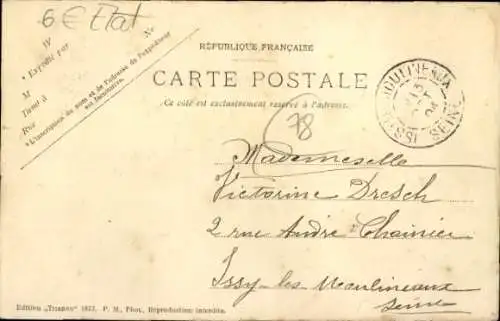 6 € Etat
N°
M
* Expédié par
M
Demt à
Rue
* L'inscription du nom et de l'adresse de l'expéditeur
est facultative.
RÉPUBLIQUE FRANÇAISE
CARTE POSTALE
Ce côté est exclusivement réservé à l'adresse.
MOULINEAUX
ISSY
SEINE
78
Mademoiselle
Victorine Dresch
2 rue André Chainier
Issy-les-Moulineaux
Seine
Edition „Trianon" P. M., Phot. Reproduction interdite.